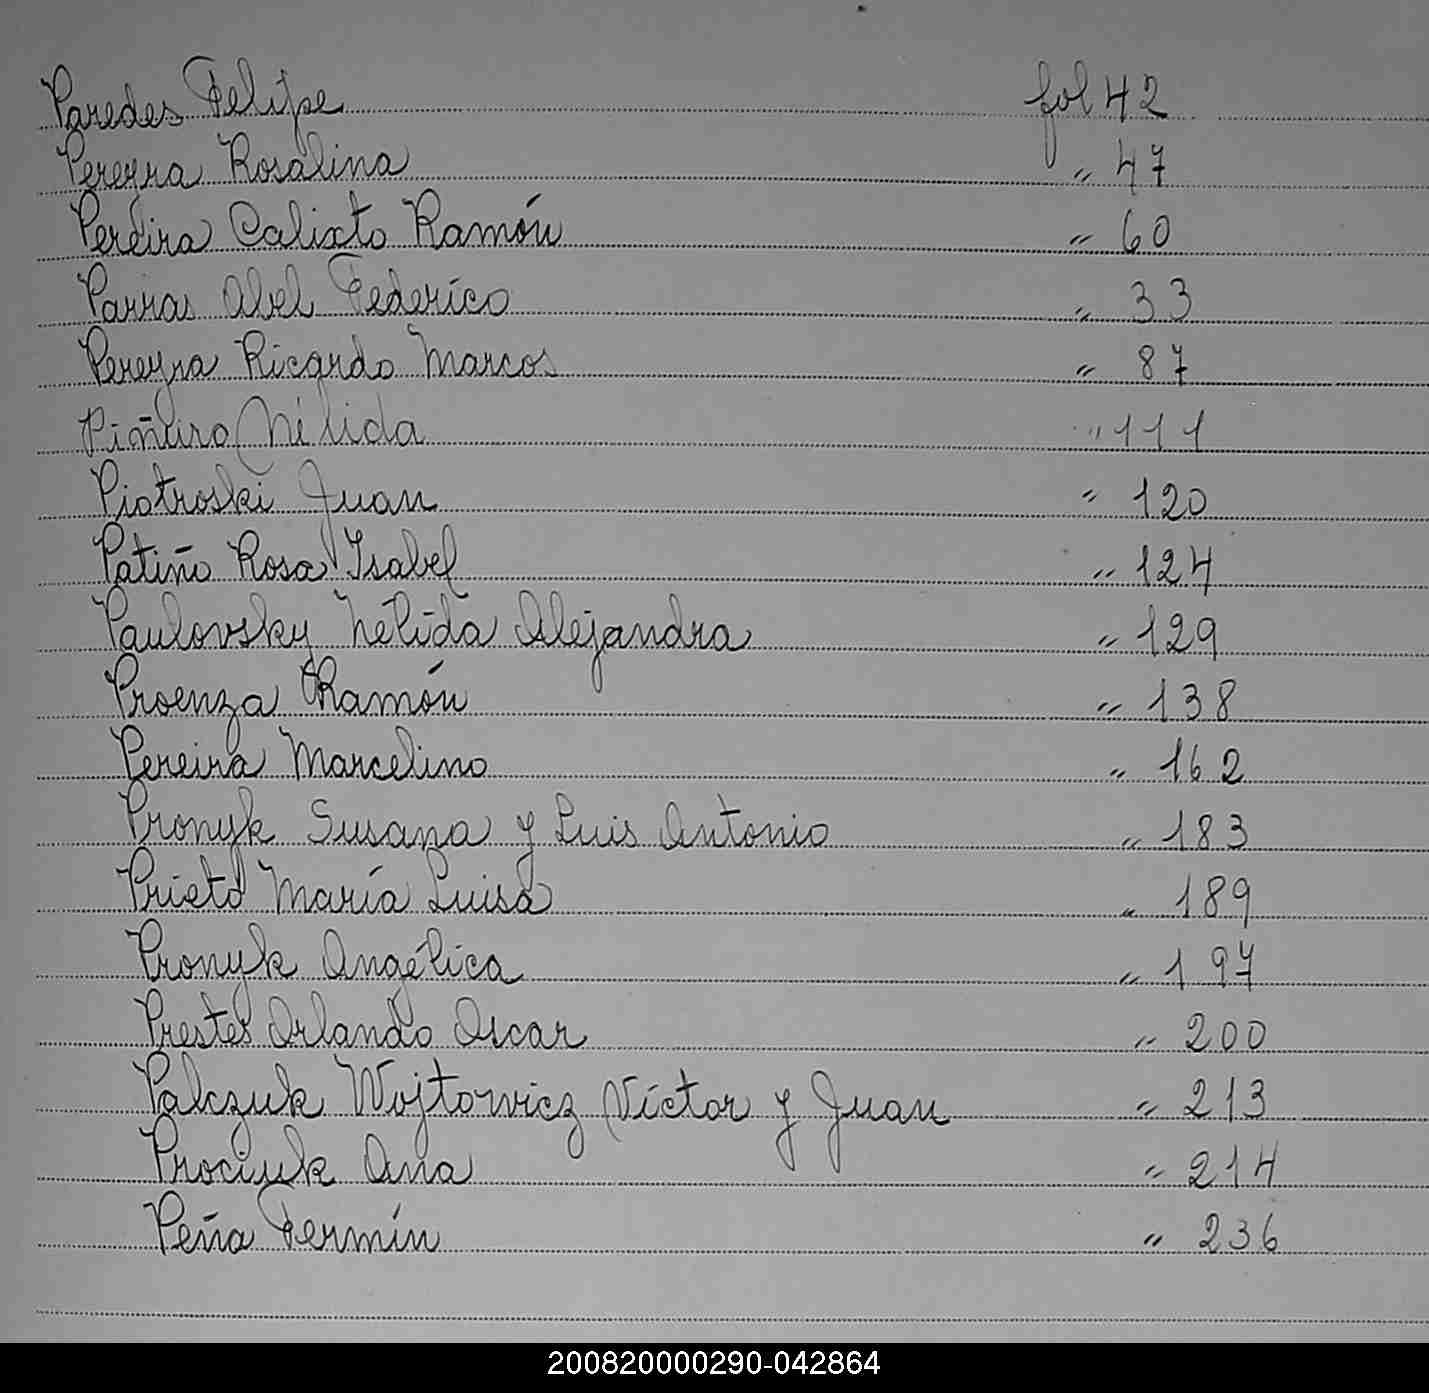 Paredes Felipe fol 42
Pereyra Rosalina " 47
Pereira Calixto Ramón " 60
Parras Abel Federico " 33
Pereyra Ricardo Marcos " 87
Piñeiro Nélida " 111
Piotroski Juan " 120
Patiño Rosa Isabel " 124
Paulovsky Nélida Alejandra " 129
Proenza Ramón " 138
Pereira Marcelino " 162
Pronyk Susana y Luis Antonio " 183
Prieto María Luisa " 189
Pronyk Angélica " 197
Prestes Orlando Oscar " 200
Palczuk Wojtowicz Víctor y Juan " 213
Prociuk Ana " 214
Peña Fermín " 236
200820000290-042864